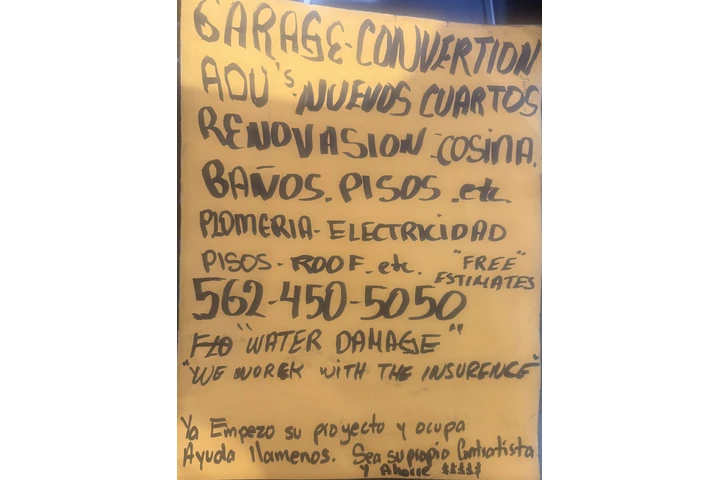 GARAGE-CONVERTION
ADU's - NUEVOS CUARTOS
RENOVASION - COSINA.
BAÑOS. PISOS. etc
PLOMERIA - ELECTRICIDAD
PISOS - ROOF. etc. "FREE"
ESTIMATES
562-450-5050
"WATER DAMAGE"
"WE WOREK WITH THE INSURENCE"
Ya Empezo su proyecto y ocupa
Ayuda llamenos. Sea su propio Contratista
y Ahorre $$$$$